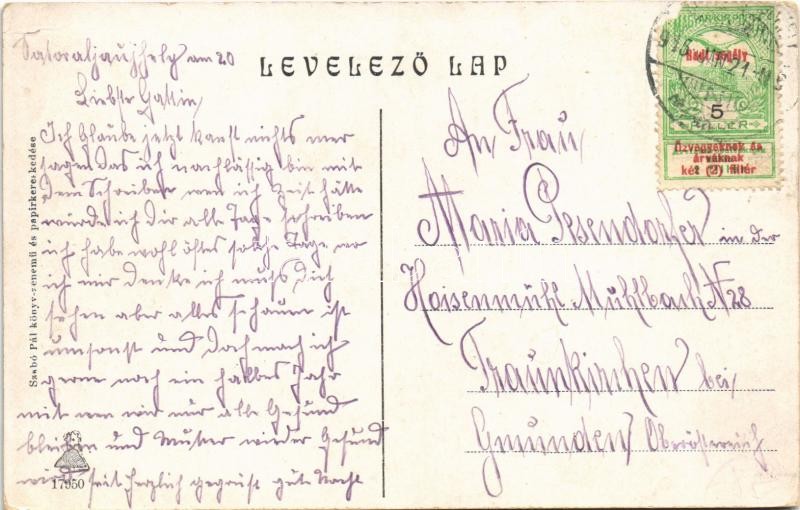 Satoraljaujhely am 20
LEVELEZŐ LAP
Liebste Gattin,
Ich glaube jetzt kanst nichts mer
sagen das ich nachlässig bin mit
dem Schreiben wen ich Zeit hätte
würde ich Dir alle Tage schreiben
ich habe wohl öfters solche Tage wo
ich mir denke ich muss dich
sehen aber alles ist
umsonst und doch mach ich
gerne noch ein halbes Jahr
mit wen wir nur alle Gesund
bleiben und Mutter wieder Gesund
wird seit herzlich gegrüst gute Nacht
An Frau
Maria Pesendorfer in der
Hoisenmühl Mühlbach N 28
Traunkirchen bei
Gmunden Oberösterreich
Szabó Pál könyv-zenemű és papirkereskedése
17950
MAGYAR KIR. POSTA
Hadi segély
5
FILLÉR
Özvegyeknek és
árváknak
két (2) fillér